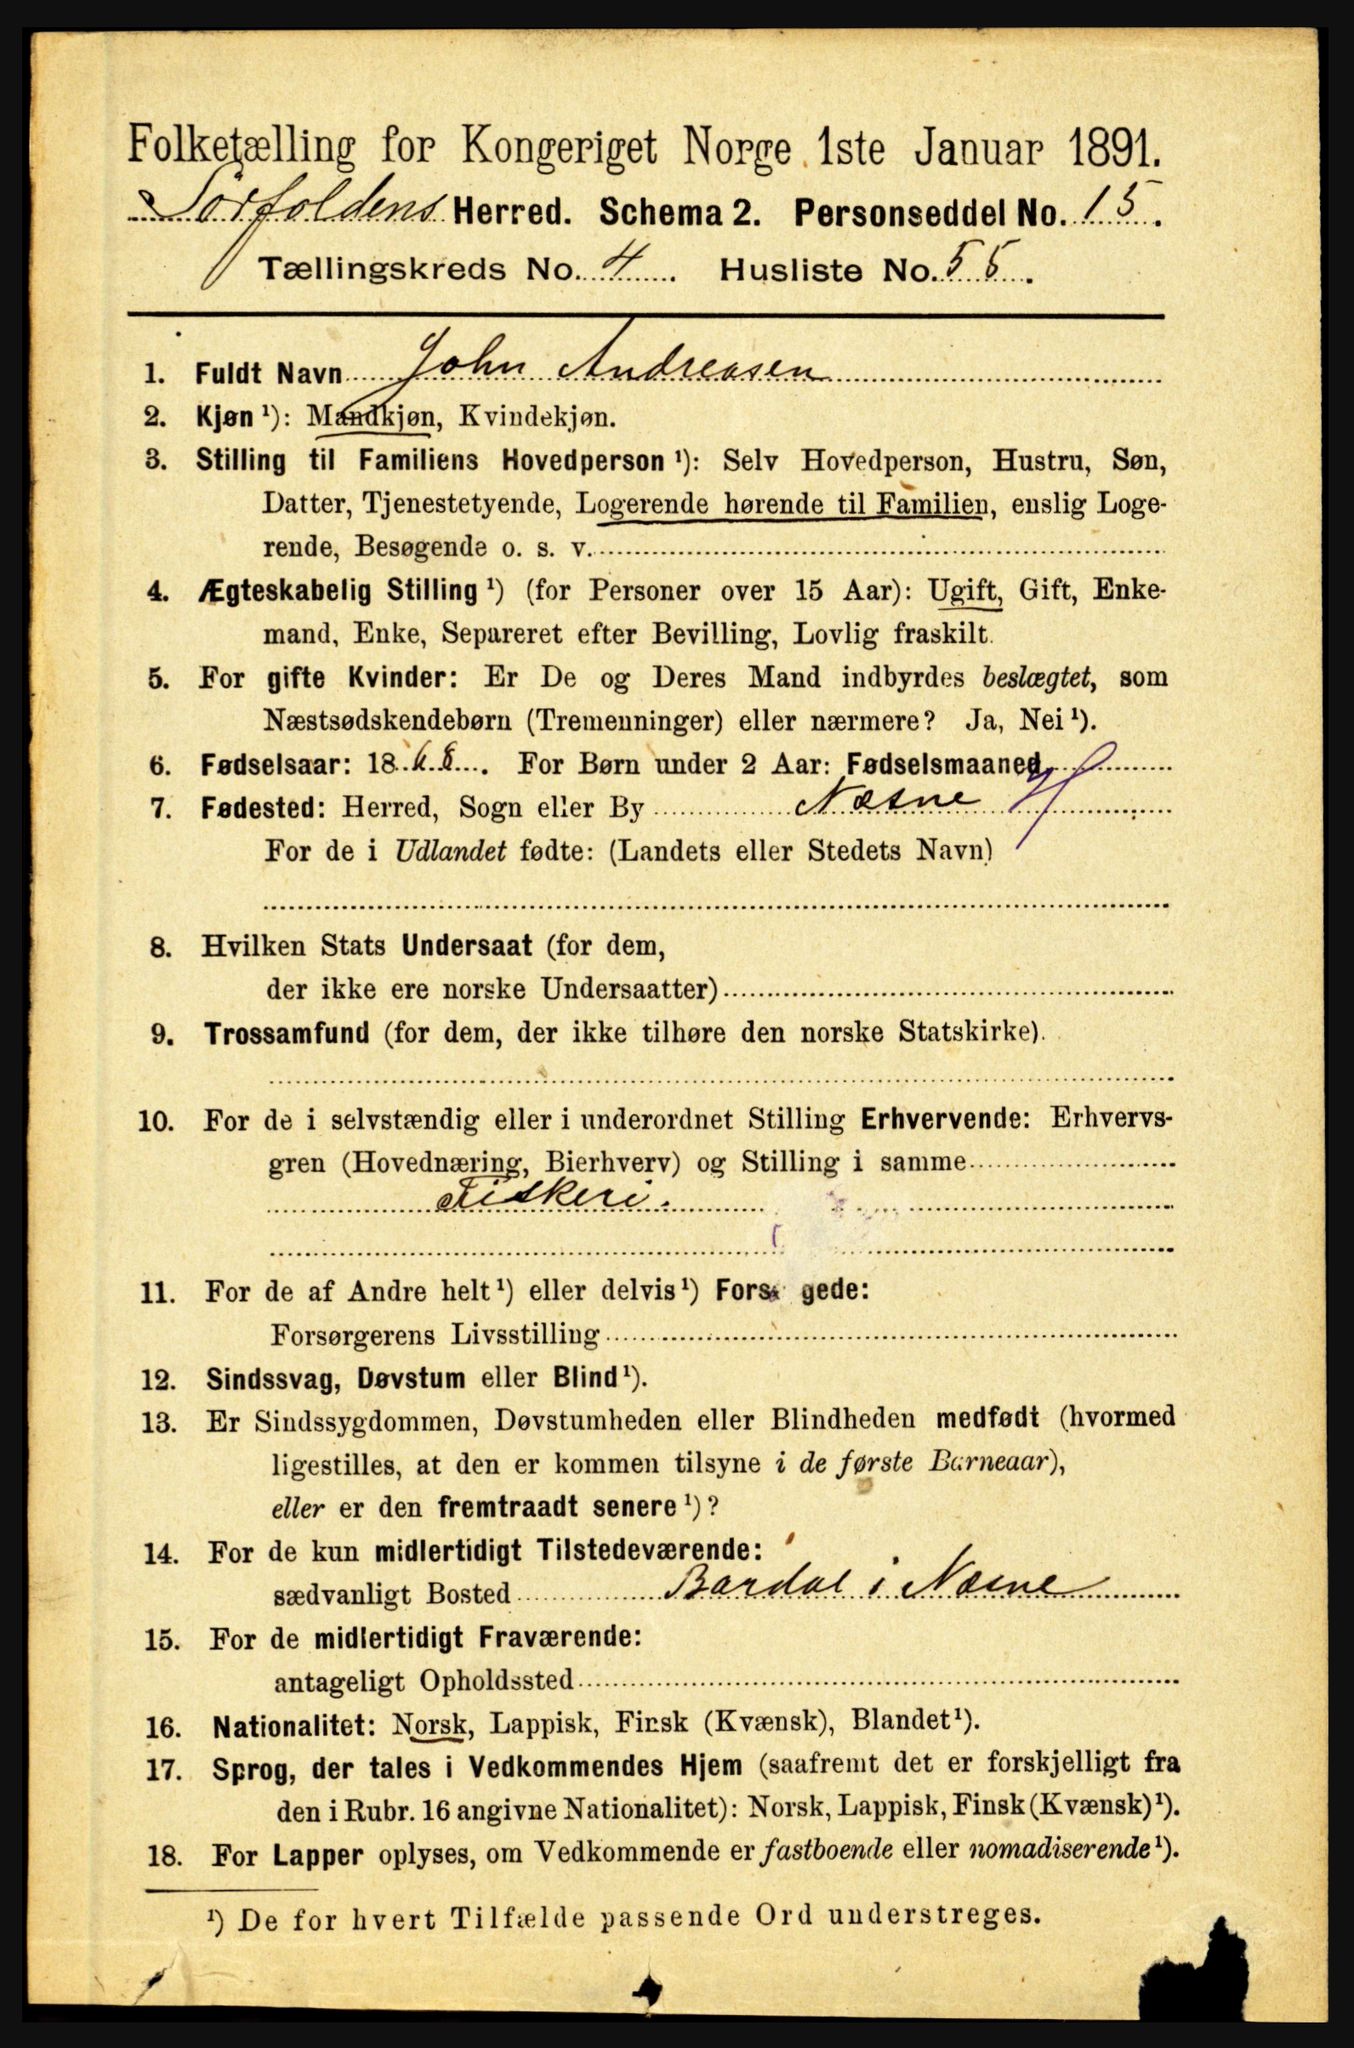 Folketælling for Kongeriget Norge 1ste Januar 1891.
Sørfoldens Herred. Schema 2. Personseddel No. 15.
Tællingskreds No. 4. Husliste No. 55.
1. Fuldt Navn John Andreasen
2. Kjøn ¹): Mandkjøn, Kvindekjøn.
3. Stilling til Familiens Hovedperson ¹): Selv Hovedperson, Hustru, Søn,
Datter, Tjenestetyende, Logerende hørende til Familien, enslig Loge-
rende, Besøgende o. s. v.
4. Ægteskabelig Stilling ¹) (for Personer over 15 Aar): Ugift, Gift, Enke-
mand, Enke, Separeret efter Bevilling, Lovlig fraskilt.
5. For gifte Kvinder: Er De og Deres Mand indbyrdes beslægtet, som
Næstsødskendebørn (Tremenninger) eller nærmere? Ja, Nei ¹).
6. Fødselsaar: 1868. For Børn under 2 Aar: Fødselsmaaned
7. Fødested: Herred, Sogn eller By Næsne
For de i Udlandet fødte: (Landets eller Stedets Navn)
8. Hvilken Stats Undersaat (for dem,
der ikke ere norske Undersaatter)
9. Trossamfund (for dem, der ikke tilhøre den norske Statskirke).
10. For de i selvstændig eller i underordnet Stilling Erhvervende: Erhvervs-
gren (Hovednæring, Bierhverv) og Stilling i samme
Fiskeri.
11. For de af Andre helt ¹) eller delvis ¹) Fors gede:
Forsørgerens Livsstilling
12. Sindssvag, Døvstum eller Blind ¹).
13. Er Sindssygdommen, Døvstumheden eller Blindheden medfødt (hvormed
ligestilles, at den er kommen tilsyne i de første Barneaar),
eller er den fremtraadt senere ¹)?
14. For de kun midlertidigt Tilstedeværende:
sædvanligt Bosted Bardal i Næsne
15. For de midlertidigt Fraværende:
antageligt Opholdssted
16. Nationalitet: Norsk, Lappisk, Finsk (Kvænsk), Blandet ¹).
17. Sprog, der tales i Vedkommendes Hjem (saafremt det er forskjelligt fra
den i Rubr. 16 angivne Nationalitet): Norsk, Lappisk, Finsk (Kvænsk) ¹).
18. For Lapper oplyses, om Vedkommende er fastboende eller nomadiserende ¹).
¹) De for hvert Tilfælde passende Ord understreges.